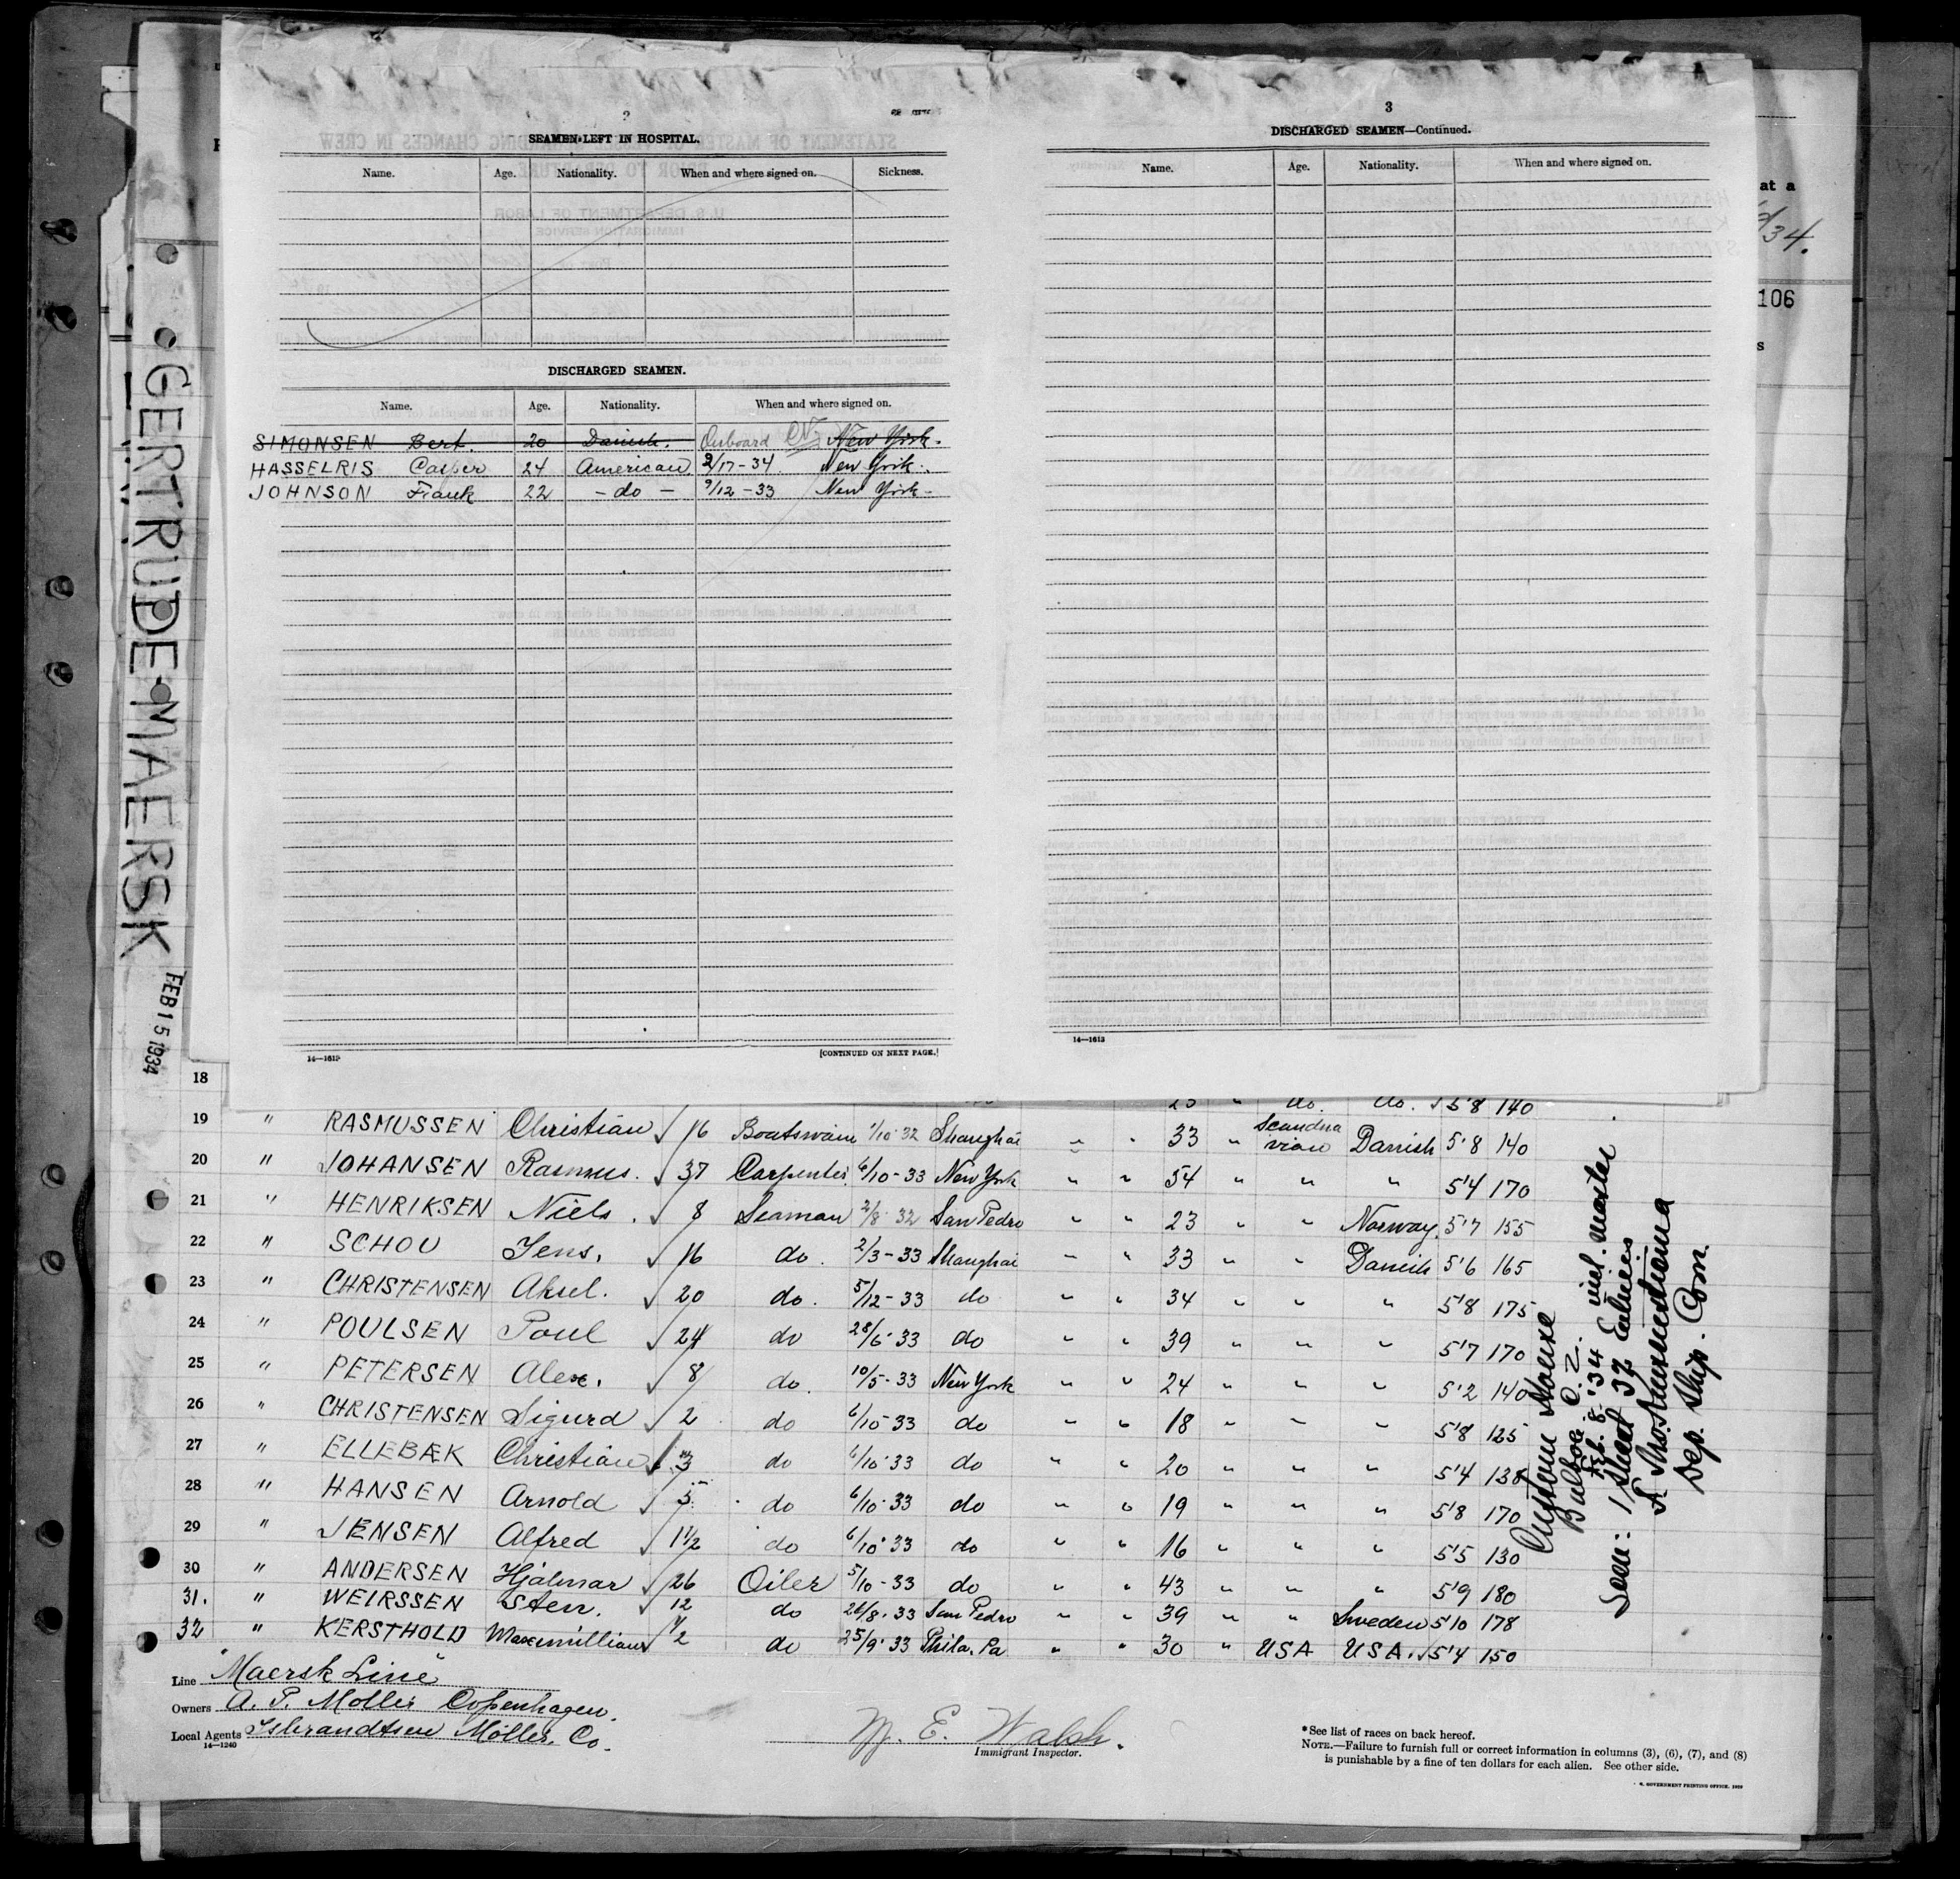 GERTRUDE MAERSK
FEB 15 1934
at a
34.
106
s
2
SEAMEN LEFT IN HOSPITAL.
Name. Age. Nationality. When and where signed on. Sickness.
DISCHARGED SEAMEN.
Name. Age. Nationality. When and where signed on.
SIMONSEN Bert. 20 Danish. Onboard New York.
HASSELRIS Casper 24 American 2/17-34. New York.
JOHNSON Frank 22 -do- 9/12-33 New York-
14-1613 [CONTINUED ON NEXT PAGE.]
3
DISCHARGED SEAMEN—Continued.
Name. Age. Nationality. When and where signed on.
14-1613
18 " do. do. 5'8 140
19 " RASMUSSEN Christian √ 16 Boatswain 1/10-32 Shanghai " " 33 " Scandinavian Danish 5'8 140
20 " JOHANSEN Rasmus. √ 37 Carpenter 6/10-33 New York " " 54 " " " 5'4 170
21 " HENRIKSEN Niels. √ 8 Seaman 2/8-32 San Pedro " " 23 " " Norway. 5'7 155
22 " SCHOU Jens. √ 16 do. 2/3-33 Shanghai " " 33 " " Danish 5'6 165
23 " CHRISTENSEN Aksel. √ 20 do. 5/12-33 do " " 34 " " " 5'8 175
24 " POULSEN Poul √ 24 do 28/6-33 do " " 39 " " " 5'7 170
25 " PETERSEN Alex. √ 8 do. 10/5-33 New York " " 24 " " " 5'2 140
26 " CHRISTENSEN Sigurd √ 2 do 6/10-33 do " " 18 " " " 5'8 125
27 " ELLEBÆK Christian √ 3 do 6/10-33 do " " 20 " " " 5'4 138
28 " HANSEN Arnold √ 5 do 6/10-33 do " " 19 " " " 5'8 170
29 " JENSEN Alfred √ 1 1/2 do 6/10-33 do " " 16 " " " 5'5 130
30 " ANDERSEN Hjalmar √ 26 Oiler 5/10-33 do " " 43 " " " 5'9 180
31. " WEIRSSEN Sten. √ 12 do 26/8-33 San Pedro " " 39 " " Sweden 5'10 178
32 " KERSTHOLD Maxmillian √ 1/2 do 25/9-33 Phila. Pa " " 30 " USA USA. √ 5'4 150
Custom House
Balboa C.Z.
Feb. 8. '34 incl. Master
Seen: 1 Sheet 32 Entries
Dep. Ship. Com.
Line "Maersk Line"
Owners A. P. Moller Copenhagen.
Local Agents Isbrandtsen Möller. Co.
14-1240
E. Walsh.
Immigrant Inspector.
*See list of races on back hereof.
NOTE.—Failure to furnish full or correct information in columns (3), (6), (7), and (8)
is punishable by a fine of ten dollars for each alien. See other side.
GOVERNMENT PRINTING OFFICE.